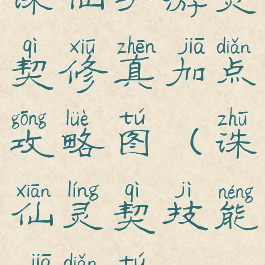 诛仙手游灵
qì xiū zhēn jiā diǎn
契修真加点
gōng lüè tú zhū
攻略图（诛
xiān líng qì jì néng
仙灵契技能
jiā diǎn tú